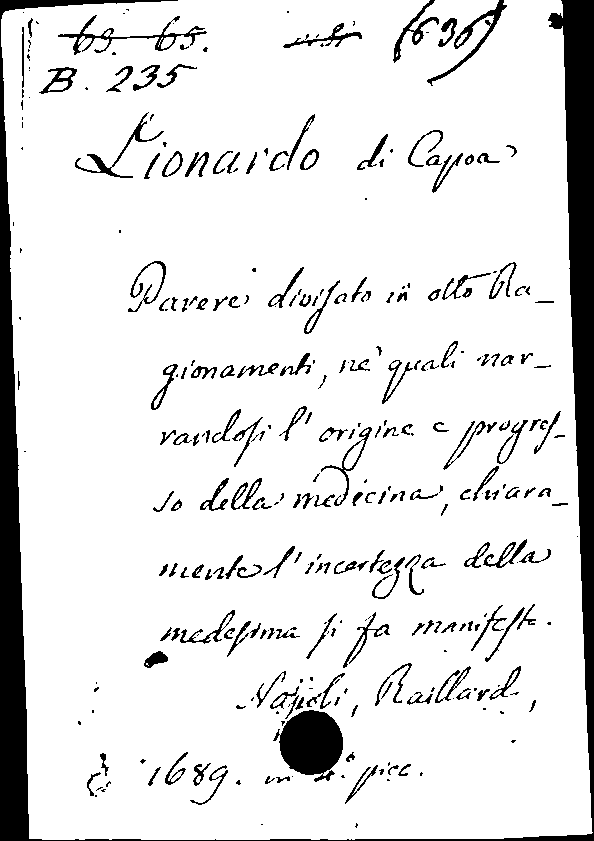 63. 65. (636)
B. 235
Lionardo di Capoa
Parere divisato in otto Ra_
gionamenti, ne' quali nar_
randosi l'origine e progres_
so della medicina, chiara_
mente l'incertezza della
medesima si fa manifesta.
Napoli, Raillard,
1689. in 4.° picc.